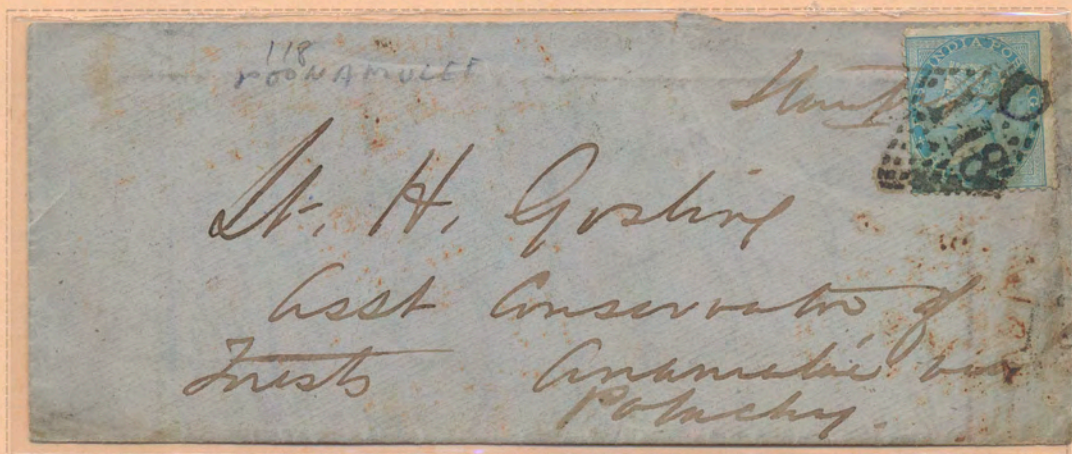 118
POONAMULEE
Stamp
INDIA POSTAGE
C
118
Lt. H. Gosling
Asst Conservator of
Forests Anamalie via
Polachy.